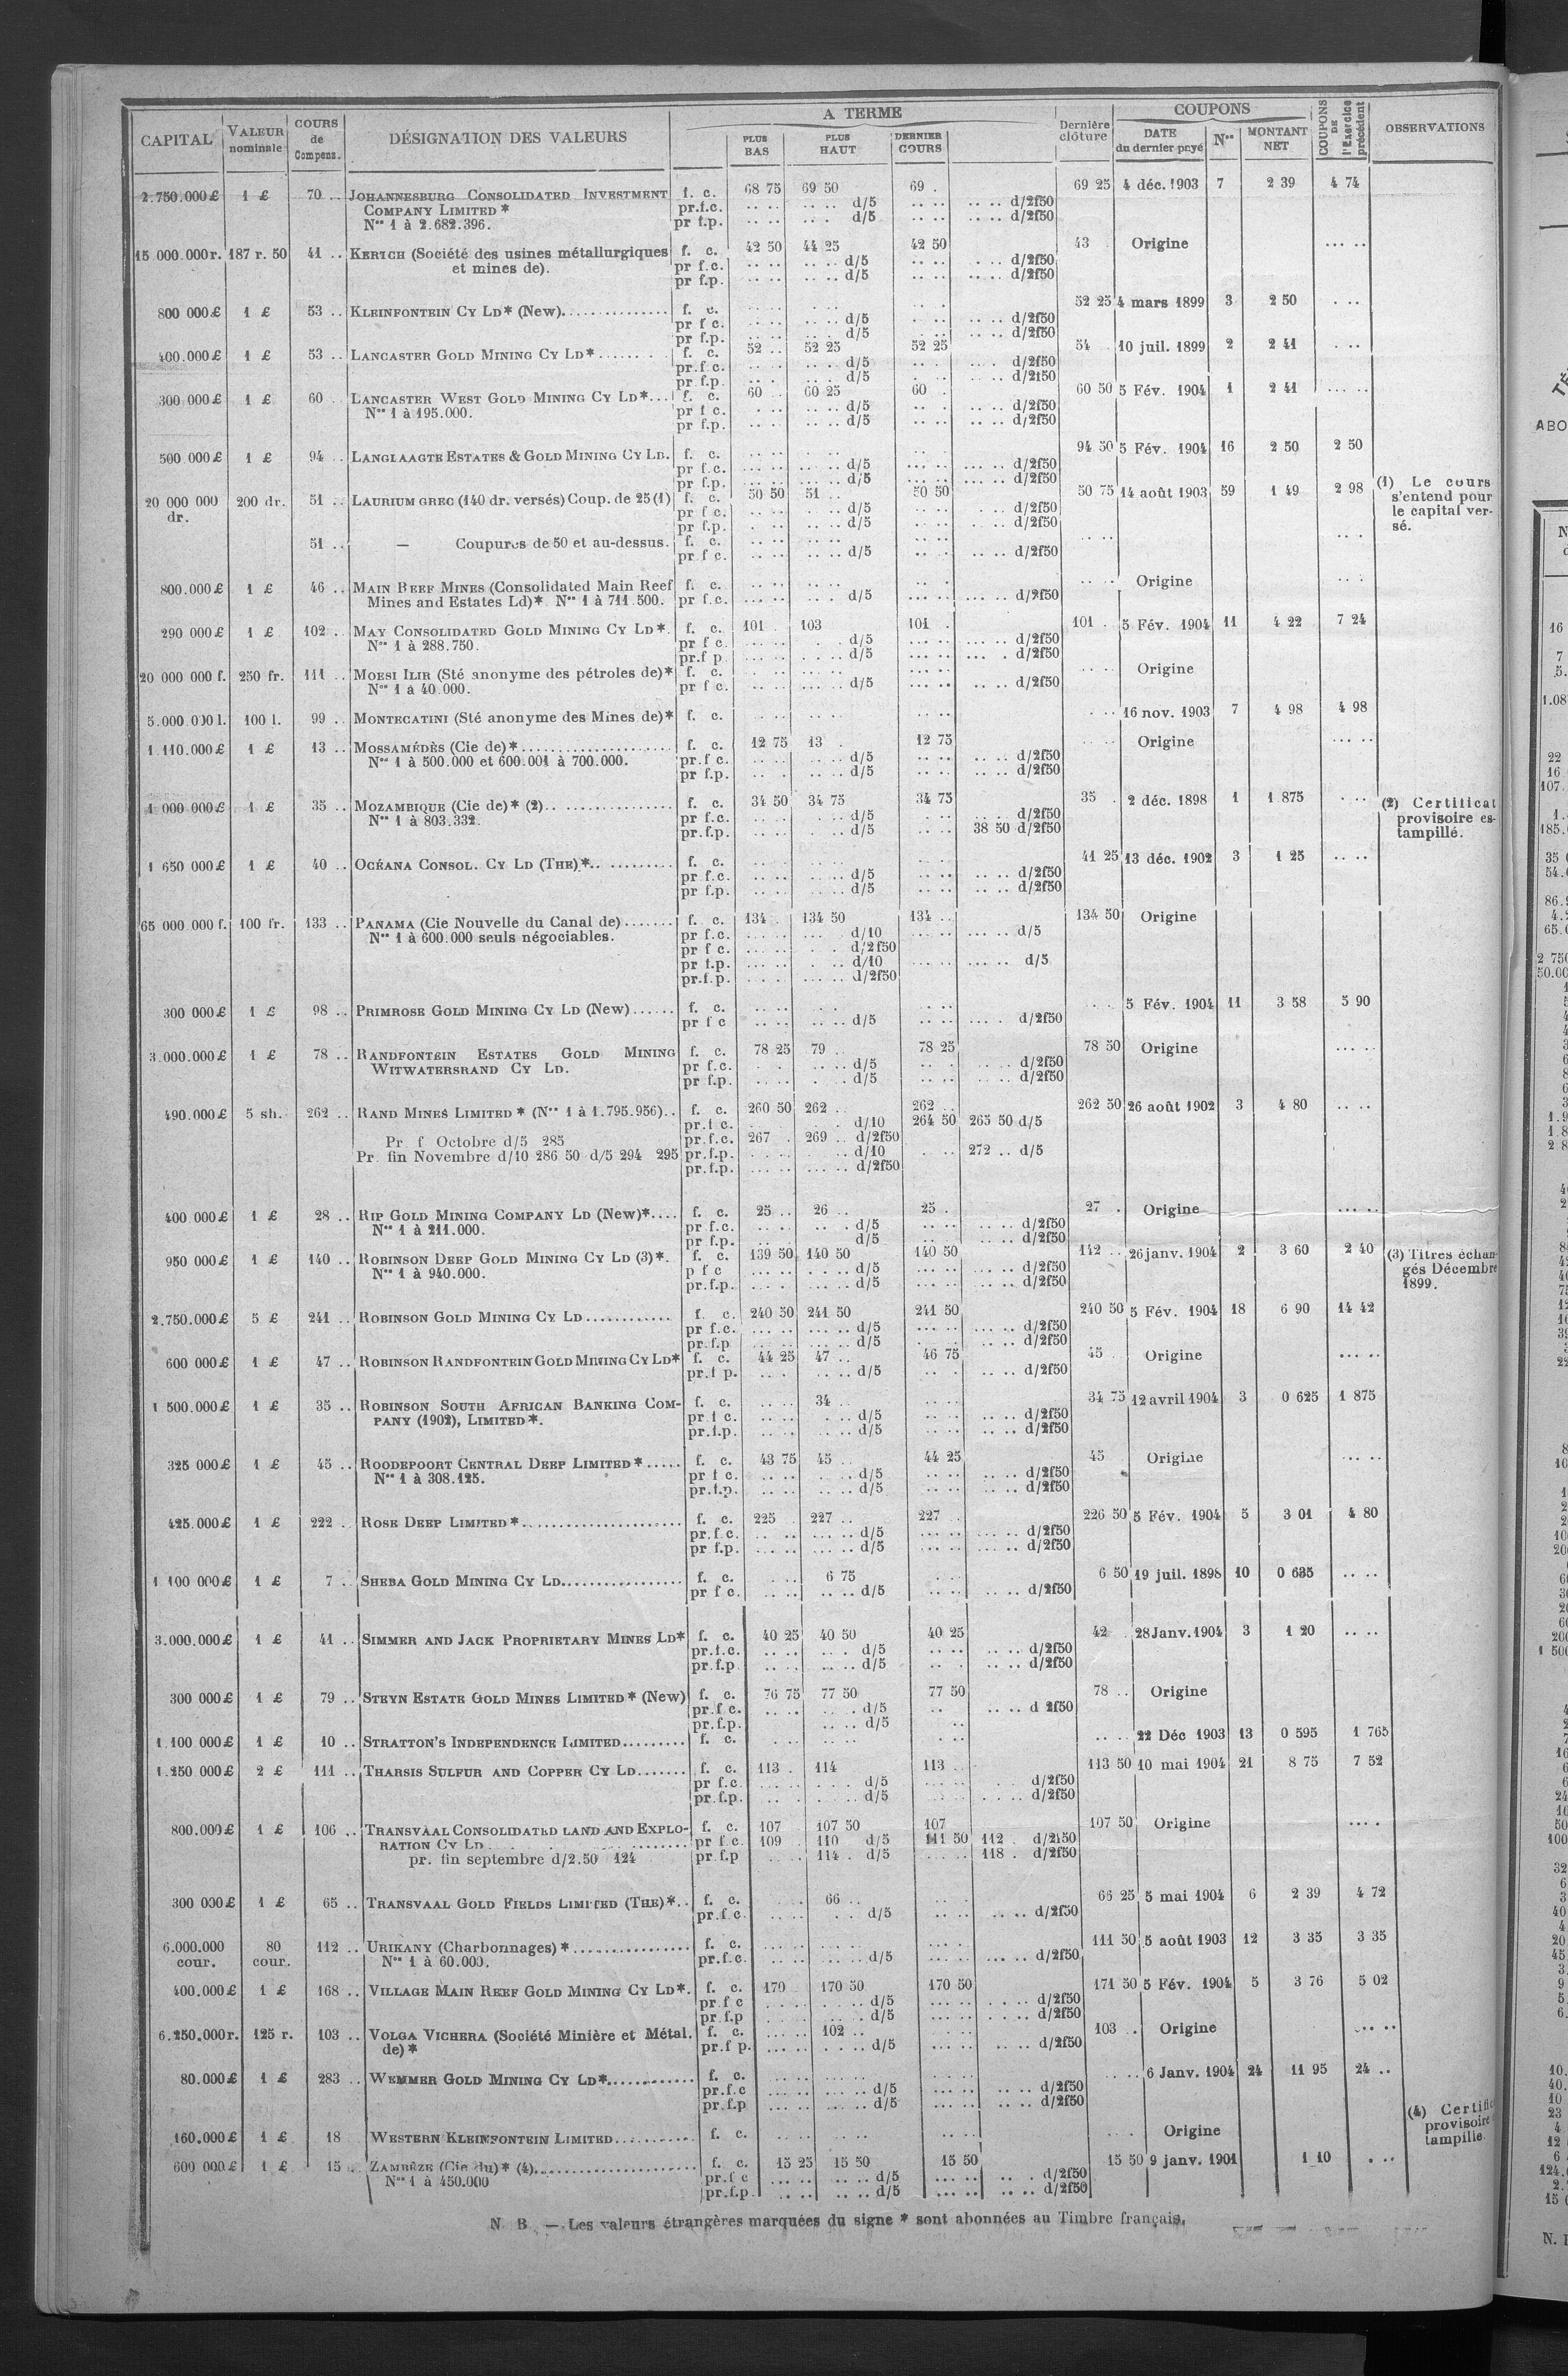 CAPITAL VALEUR nominale COURS de Compens. DÉSIGNATION DES VALEURS A TERME PLUS BAS PLUS HAUT DERNIER COURS Dernière clôture COUPONS DATE du dernier payé Nos MONTANT NET COUPONS DE l'Exercice précédent OBSERVATIONS
2.750.000 £ 1 £ 70 .. JOHANNESBURG CONSOLIDATED INVESTMENT f. c. 68 75 69 50 69 . 69 25 4 déc. 1903 7 2 39 4 74
COMPANY LIMITED * pr.f.c. .. .. .. .. d/5 .. .. .. .. d/2f50
Nos 1 à 2.682.396. pr f.p. .. .. .. .. d/5 .. .. .. .. d/2f50
15 000.000 r. 187 r. 50 41 .. KERTCH (Société des usines métallurgiques f. c. 42 50 44 25 42 50 43 Origine ... ..
et mines de). pr f.c. .. .. .. .. d/5 .. .. .. .. d/2f50
pr f.p. .. .. .. .. d/5 .. .. .. .. d/2f50
800 000 £ 1 £ 53 .. KLEINFONTEIN CY LD* (New) f. c. 52 25 4 mars 1899 3 2 50 . ..
pr f c. .. .. .. .. d/5 .. .. .. .. d/2f50
pr f.p. .. .. .. .. d/5 .. .. .. .. d/2f50
400.000 £ 1 £ 53 .. LANCASTER GOLD MINING CY LD* f. c. 52 .. 52 25 52 25 54 . 10 juil. 1899 2 2 41 . ..
pr.f c. .. .. .. .. d/5 .. .. .. .. d/2f50
pr f.p. .. .. .. .. d/5 .. .. .. .. d/2f50
300 000 £ 1 £ 60 .. LANCASTER WEST GOLD MINING CY LD* f. c. 60 .. 60 25 60 . 60 50 5 Fév. 1904 1 2 41 ... ..
Nos 1 à 195.000. pr f c. .. .. .. .. d/5 .. .. .. .. d/2f50
pr f.p. .. .. .. .. d/5 .. .. .. .. d/2f50
500 000 £ 1 £ 94 .. LANGLAAGTE ESTATES & GOLD MINING CY LD. f. c. 94 50 5 Fév. 1904 16 2 50 2 50
pr f.c. ... .. ... .. d/5 ... .. ... .. d/2f50
pr f.p. ... .. ... .. d/5 ... .. ... .. d/2f50
20 000 000 dr. 200 dr. 51 .. LAURIUM GREC (140 dr. versés) Coup. de 25 (1) f. c. 50 50 51 .. 50 50 50 75 14 août 1903 59 1 49 2 98 (1) Le cours s'entend pour le capital versé.
pr f c. .. .. .. .. d/5 .. .. .. .. d/2f50
pr f.p. .. .. .. .. d/5 .. .. .. .. d/2f50
51 .. — Coupures de 50 et au-dessus. f. c. .. .. .. .. .. .. .. .. .. .
pr.f c. .. .. .. .. d/5 .. .. .. .. d/2f50
800.000 £ 1 £ 46 .. MAIN REEF MINES (Consolidated Main Reef f. c. .. .. .. .. .. . .. .. Origine .. .
Mines and Estates Ld)* Nos 1 à 711.500. pr f.c. ... .. .. .. d/5 ... .. ... .. d/2f50
290 000 £ 1 £ 102 .. MAY CONSOLIDATED GOLD MINING CY LD*. f. c. 101 . 103 101 . 101 . 5 Fév. 1904 11 4 22 7 24
Nos 1 à 288.750. pr f c. ... .. .. .. d/5 ... .. ... .. d/2f50
pr.f p. ... .. ... .. d/5 ... .. ... .. d/2f50
20 000 000 f. 250 fr. 111 .. MOESI ILIR (Sté anonyme des pétroles de)* f. c. ... .. Origine
Nos 1 à 40.000. pr f c. .. .. ... .. d/5 ... .. .. .. d/2f50
5.000.000 l. 100 l. 99 .. MONTECATINI (Sté anonyme des Mines de)* f. c. .. .. .. .. .. .. . .. 16 nov. 1903 7 4 98 4 98
1.110.000 £ 1 £ 13 .. MOSSAMÉDÈS (Cie de)* f. c. 12 75 13 . 12 75 . .. Origine ... ..
Nos 1 à 500.000 et 600.001 à 700.000. pr.f c. .. .. .. .. d/5 .. .. .. .. d/2f50
pr f.p. .. . .. .. d/5 .. .. .. .. d/2f50
1 000 000 £ 1 £ 35 .. MOZAMBIQUE (Cie de)* (2) f. c. 34 50 34 75 34 75 35 . 2 déc. 1898 1 1 875 . .. (2) Certificat provisoire estampillé.
Nos 1 à 803.332. pr f.c. .. .. .. .. d/5 . .. .. .. d/2f50
pr.f.p. .. .. .. .. d/5 .. .. 38 50 d/2f50
1 650 000 £ 1 £ 40 .. OCÉANA CONSOL. CY LD (THE)* f. c. 41 25 13 déc. 1902 3 1 25 .. ..
pr f.c. .. .. .. .. d/5 .. .. .. .. d/2f50
pr f.p. .. .. .. .. d/5 .. .. .. .. d/2f50
65 000 000 f. 100 fr. 133 .. PANAMA (Cie Nouvelle du Canal de) f. c. 134 . 134 50 134 .. 134 50 Origine
Nos 1 à 600.000 seuls négociables. pr f.c. ... .. ... . d/10 ... .. ... .. d/5
pr f c. ... .. . . d/2f50
pr f.p. ... .. . .. d/10 ... .. ... .. d/5
pr.f.p. ... .. ... .. d/2f50
300 000 £ 1 £ 98 .. PRIMROSE GOLD MINING CY LD (New) f. c. . .. 5 Fév. 1904 11 3 58 5 90
pr f c .. .. .. .. d/5 .. .. ... . d/2f50
3.000.000 £ 1 £ 78 .. RANDFONTEIN ESTATES GOLD MINING f. c. 78 25 79 .. 78 25 78 50 Origine ... ..
WITWATERSRAND CY LD. pr f.c. . . .. .. d/5 .. . .. .. d/2f50
pr f.p. .. .. . . d/5 .. .. .. .. d/2f50
490.000 £ 5 sh. 262 .. RAND MINES LIMITED * (Nos 1 à 1.795.956) f. c. 260 50 262 .. 262 .. 262 50 26 août 1902 3 4 80 .. ..
pr.f c. . . d/10 264 50 265 50 d/5
Pr. f Octobre d/5 285 pr.f.c. 267 . 269 .. d/2f50
Pr. fin Novembre d/10 286 50 d/5 294 295 pr.f.p. .. .. d/10 . .. 272 .. d/5
pr.f.p. ... .. ... .. d/2f50
400 000 £ 1 £ 28 .. RIP GOLD MINING COMPANY LD (New)* f. c. 25 .. 26 .. 25 . 27 . Origine ... ..
Nos 1 à 211.000. pr f.c. .. .. .. . d/5 .. .. .. .. d/2f50
pr f.p. .. d/5 .. .. .. .. d/2f50
950 000 £ 1 £ 140 .. ROBINSON DEEP GOLD MINING CY LD (3)*. f. c. 139 50 140 50 140 50 142 .. 26 janv. 1904 2 3 60 2 40 (3) Titres échangés Décembre 1899.
Nos 1 à 940.000. p f c ... .. . .. d/5 ... .. ... .. d/2f50
pr.f.p. ... .. ... .. d/5 ... .. ... .. d/2f50
2.750.000 £ 5 £ 241 .. ROBINSON GOLD MINING CY LD f. c. 240 50 241 50 241 50 240 50 5 Fév. 1904 18 6 90 14 42
pr f.c. ... .. ... .. d/5 ... .. ... .. d/2f50
pr.f.p ... .. ... .. d/5 ... .. d/2f50
600 000 £ 1 £ 47 .. ROBINSON RANDFONTEIN GOLD MINING CY LD* f. c. 44 25 47 .. 46 75 45 . Origine ... ..
pr.f p. .. . .. .. d/5 .. . .. .. d/2f50
1 500.000 £ 1 £ 35 .. ROBINSON SOUTH AFRICAN BANKING COM- f. c. .. .. 34 .. 34 75 12 avril 1904 3 0 625 1 875
PANY (1902), LIMITED*. pr.f c. .. .. . .. d/5 .. .. .. .. d/2f50
pr.f.p. .. .. .. .. d/5 .. .. .. .. d/2f50
325 000 £ 1 £ 45 .. ROODEPOORT CENTRAL DEEP LIMITED * f. c. 43 75 45 .. 44 25 45 Origine ... ..
Nos 1 à 308.125. pr f c. .. .. .. .. d/5 .. .. .. .. d/2f50
pr.f.p. .. .. .. .. d/5 .. .. .. .. d/2f50
425.000 £ 1 £ 222 .. ROSE DEEP LIMITED * f. c. 225 . 227 .. 227 .. 226 50 5 Fév. 1904 5 3 01 4 80
pr.f.c. .. .. ... .. d/5 ... .. ... .. d/2f50
pr f.p. ... .. ... .. d/5 ... .. ... .. d/2f50
1 100 000 £ 1 £ 7 .. SHEBA GOLD MINING CY LD f. c. . .. 6 75 6 50 19 juil. 1898 10 0 635 .. ..
pr f c. .. .. .. .. d/5 .. .. .. .. d/2f50
3.000.000 £ 1 £ 41 .. SIMMER AND JACK PROPRIETARY MINES LD* f. c. 40 25 40 50 40 25 42 . 28 Janv. 1904 3 1 20 .. ..
pr.f.c. .. .. .. . d/5 .. .. .. .. d/2f50
pr.f.p .. .. .. .. d/5 .. . .. .. d/2f50
300 000 £ 1 £ 79 .. STEYN ESTATE GOLD MINES LIMITED* (New) f. c. 76 75 77 50 77 50 78 .. Origine
pr.f c. .. .. .. .. d/5 .. .. .. d 2f50
pr.f.p. .. .. d/5 ..
1.100 000 £ 1 £ 10 .. STRATTON'S INDEPENDENCE LIMITED f. c. .. .. 22 Déc 1903 13 0 595 1 765
1.250 000 £ 2 £ 111 .. THARSIS SULFUR AND COPPER CY LD f. c. 113 . 114 113 .. 113 50 10 mai 1904 21 8 75 7 52
pr f.c. ... .. . . d/5 ... .. . . d/2f50
pr.f.p. .. . .. .. d/5 ... .. . .. d/2f50
800.000 £ 1 £ 106 .. TRANSVAAL CONSOLIDATED LAND AND EXPLO- f. c. 107 107 50 107 107 50 Origine ... .
RATION CY LD pr f c. 109 . 110 d/5 111 50 112 . d/2f50
pr. fin septembre d/2.50 124 pr.f.p .. . 114 . d/5 ... .. 118 . d/2f50
300 000 £ 1 £ 65 .. TRANSVAAL GOLD FIELDS LIMITED (THE)* f. c. . . 66 .. 66 25 5 mai 1904 6 2 39 4 72
pr.f c .. .. . . d/5 .. .. .. .. d/2f50
6.000.000 cour. 80 cour. 112 .. URIKANY (Charbonnages) * f. c. 111 50 5 août 1903 12 3 35 3 35
Nos 1 à 60.000. pr.f.c. ... .. .. .. d/5 ... .. ... .. d/2f50
400.000 £ 1 £ 168 .. VILLAGE MAIN REEF GOLD MINING CY LD*. f. c. 170 170 50 170 50 171 50 5 Fév. 1904 5 3 76 5 02
pr f c .. .. . .. d/5 ... .. . .. d/2f50
pr f.p .. .. . d/5 ... .. . .. d/2f50
6.250.000 r. 125 r. 103 .. VOLGA VICHERA (Société Minière et Métal. f. c. ... .. 102 .. 103 . Origine ... ..
de) * pr.f p. ... .. . .. d/5 ... .. .. .. d/2f50
80.000 £ 1 £ 283 .. WEMMER GOLD MINING CY LD* f. c. .. .. 6 Janv. 1904 24 11 95 24 ..
pr.f.c ... .. ... .. d/5 ... .. .. .. d/2f50
pr.f.p ... .. ... .. d/5 ... .. .. .. d/2f50
160.000 £ 1 £ 18 WESTERN KLEINFONTEIN LIMITED f. c. .. .. .. .. .. .. . .. Origine
600 000 £ 1 £ 15 .. ZAMBÈZE (Cie du)* (4) f. c. 15 25 15 50 15 50 15 50 9 janv. 1901 1 10 . .. (4) provisoire
Nos 1 à 450.000 pr.f c ... .. .. .. d/5 ... .. .. . d/2f50
pr.f.p. .. .. .. .. d/5 ... .. .. .. d/2f50
N. B. — Les valeurs étrangères marquées du signe * sont abonnées au Timbre français.